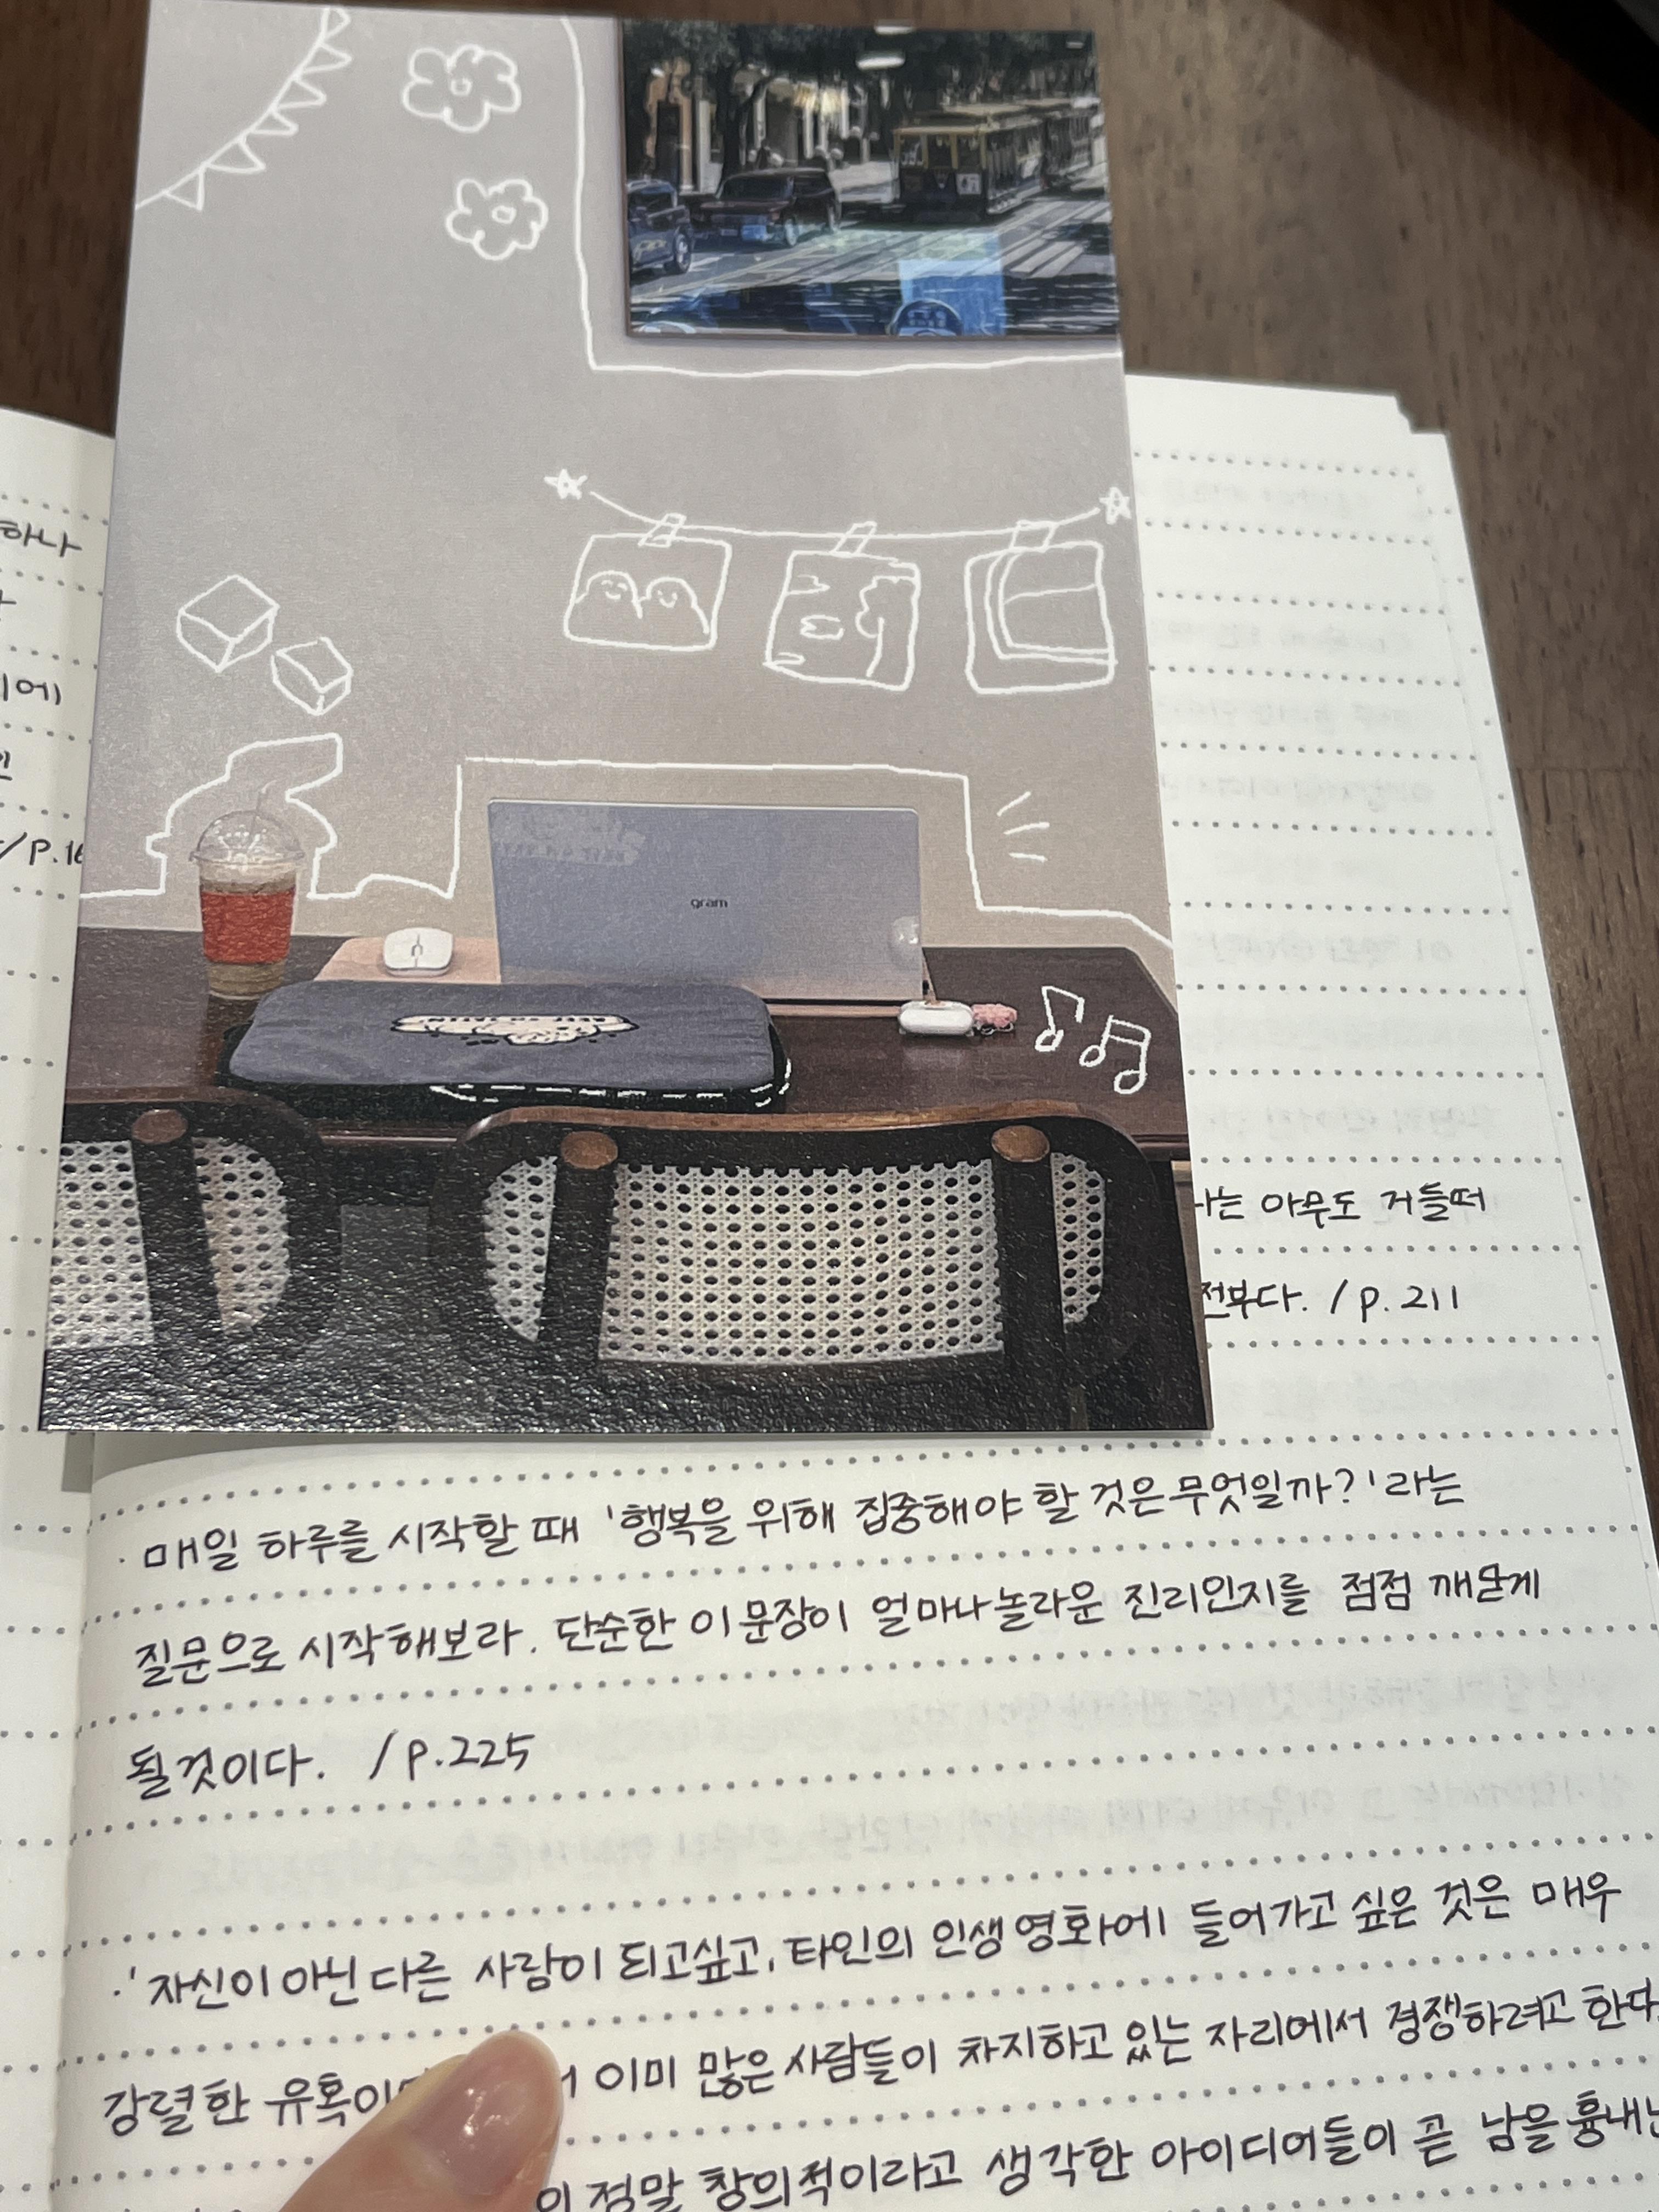 하나
에
/P.16
gram
나는 아무도 거들떠
전부다. / p. 211
· 매일 하루를 시작할 때 '행복을 위해 집중해야 할 것은 무엇일까?'라는
질문으로 시작해보라. 단순한 이 문장이 얼마나 놀라운 진리인지를 점점 깨닫게
될 것이다. / p.225
·' 자신이 아닌 다른 사람이 되고싶고, 타인의 인생 영화에 들어가고 싶은 것은 매우
강렬한 유혹이 이미 많은 사람들이 차지하고 있는 자리에서 경쟁하려고 한다.
정말 창의적이라고 생각한 아이디어들이 곧 남을 흉내